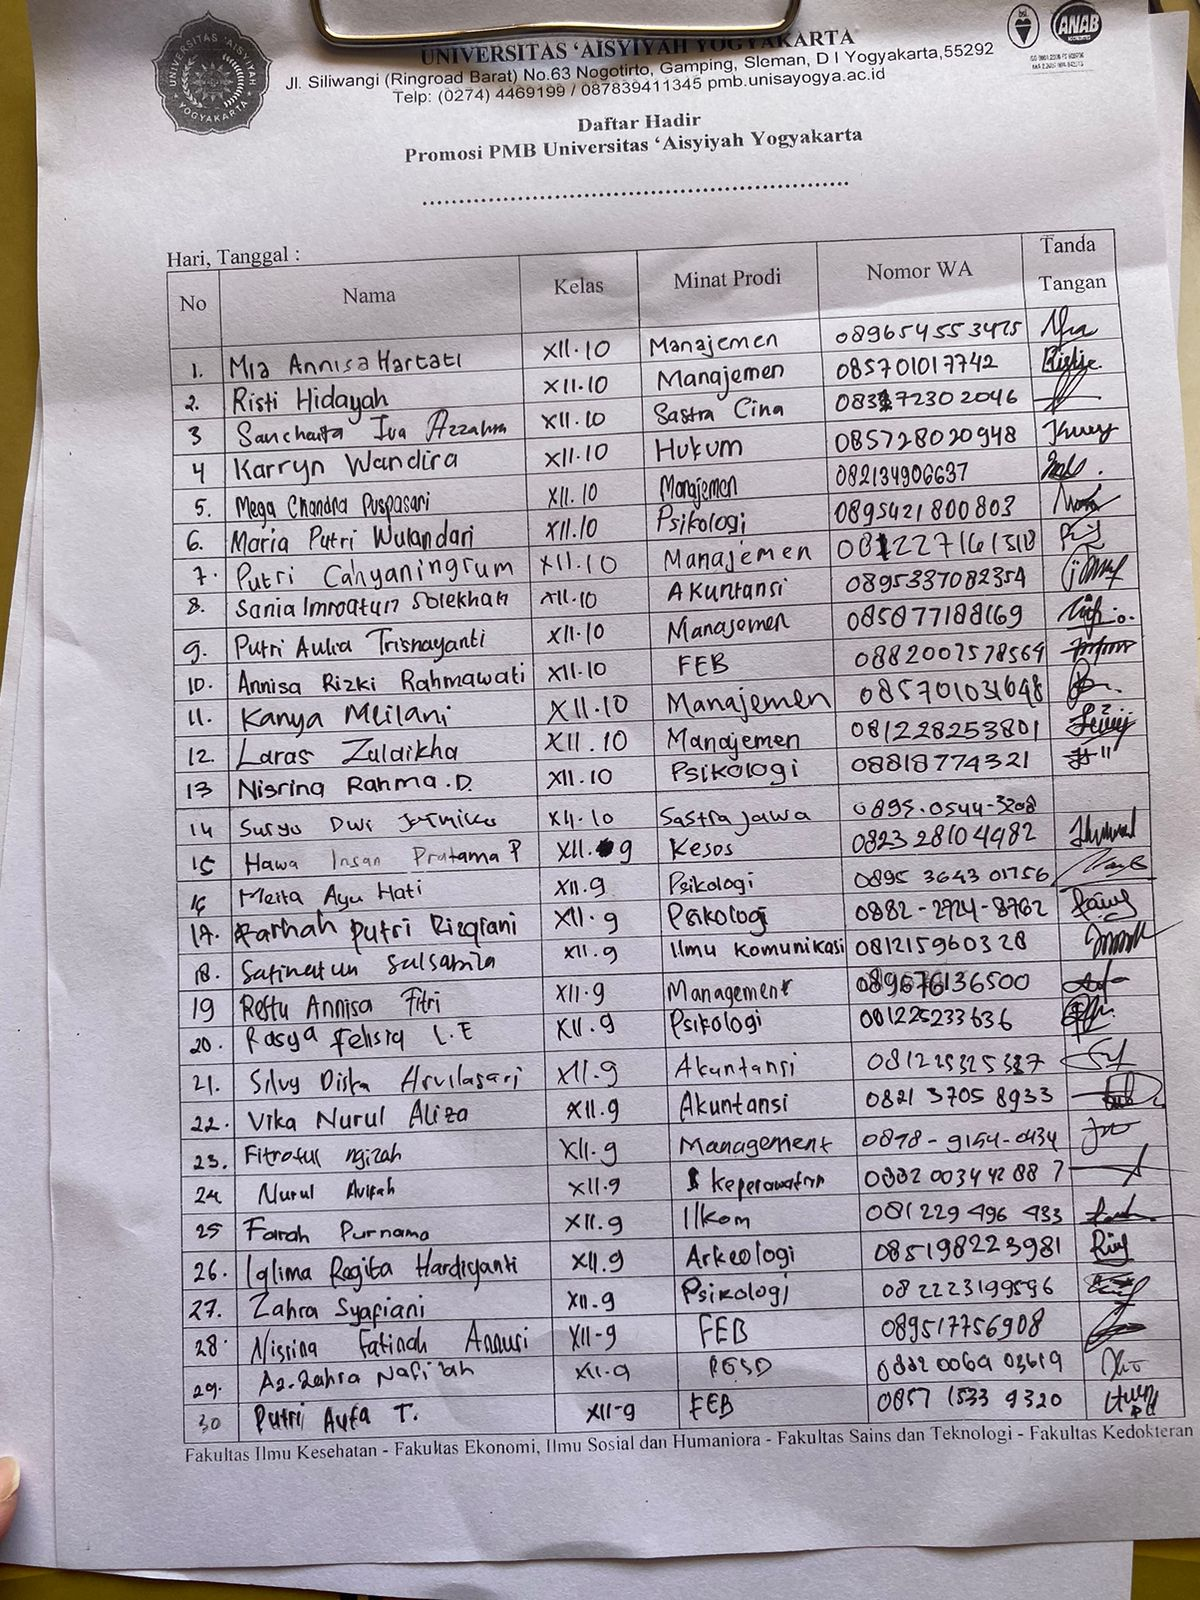 UNIVERSITAS 'AISYIYAH YOGYAKARTA
Jl. Siliwangi (Ringroad Barat) No.63 Nogotirto, Gamping, Sleman, D I Yogyakarta,55292
Telp: (0274) 4469199 / 087839411345 pmb.unisayogya.ac.id
UNIVERSITAS 'AISYIYAH YOGYAKARTA
ANAB
Daftar Hadir
Promosi PMB Universitas 'Aisyiyah Yogyakarta
Hari, Tanggal :
No Nama Kelas Minat Prodi Nomor WA Tanda Tangan
1. Mia Annisa Hartati XII.10 Manajemen 089654553475
2. Risti Hidayah XII.10 Manajemen 085701017742
3 Iva Azzahra XII.10 Sastra Cina
4 Karryn Wandira XII.10 Hukum 085728020948
5. Mega Chandra Puspasari XII.10 Manajemen 082134906637
6. Maria Putri Wulandari XII.10 Psikologi 0895421800803
7. Putri Cahyaningrum XII.10 Manajemen
8. Sania Imroatun Solekhah XII.10 Akuntansi 0895337082354
9. Putri Aulia Trisnayanti XII.10 Manajemen 085877188169
10. Annisa Rizki Rahmawati XII.10 FEB 0882007578564
11. Kanya Meilani XII.10 Manajemen 085701031648
12. Laras Zulaikha XII.10 Manajemen 081228253801
13 Nisrina Rahma.D. XII.10 Psikologi 08818774321
14 Suryo Dwi XII.10 Sastra Jawa 0895.0544-3208
15 Hawa Insan Pratama P XII.9 Kesos 0823 2810 4982
16 Meita Ayu Hati XII.9 Psikologi 0895 3643 01756
17. Farhah Putri Rizqiani XII.9 Psikologi 0882-2924-8762
18. Safinatun Salsabila XII.9 Ilmu Komunikasi 081215960328
19 Restu Annisa Fitri XII.9 Management 089676136500
20. Rasya Felisiq L.E XII.9 Psikologi 081225233636
21. Silvy Diska XII.9 Akuntansi
22. Vika Nurul Aliza XII.9 Akuntansi 0821 3705 8933
23. Fitrotul Ngizah XII.9 Management 0878-9154-0434
24 Nurul Avifah XII.9 keperawatan 0882 0034 42 88 7
25 Farah Purnama XII.9 Ilkom 081 229 496 433
26. Iqlima Regita Hardiyanti XII.9 Arkeologi 085198223981
27. Zahra Syafiani XII.9 Psikologi 082223199596
28. Nisrina Fatinah Annuri XII-9 FEB 089517756908
29. Az-Zahra Nafi'ah XII.9 PGSD 0882 0069 03619
30 Putri Aufa T. XII-9 FEB 0857 1533 9320
Fakultas Ilmu Kesehatan - Fakultas Ekonomi, Ilmu Sosial dan Humaniora - Fakultas Sains dan Teknologi - Fakultas Kedokteran